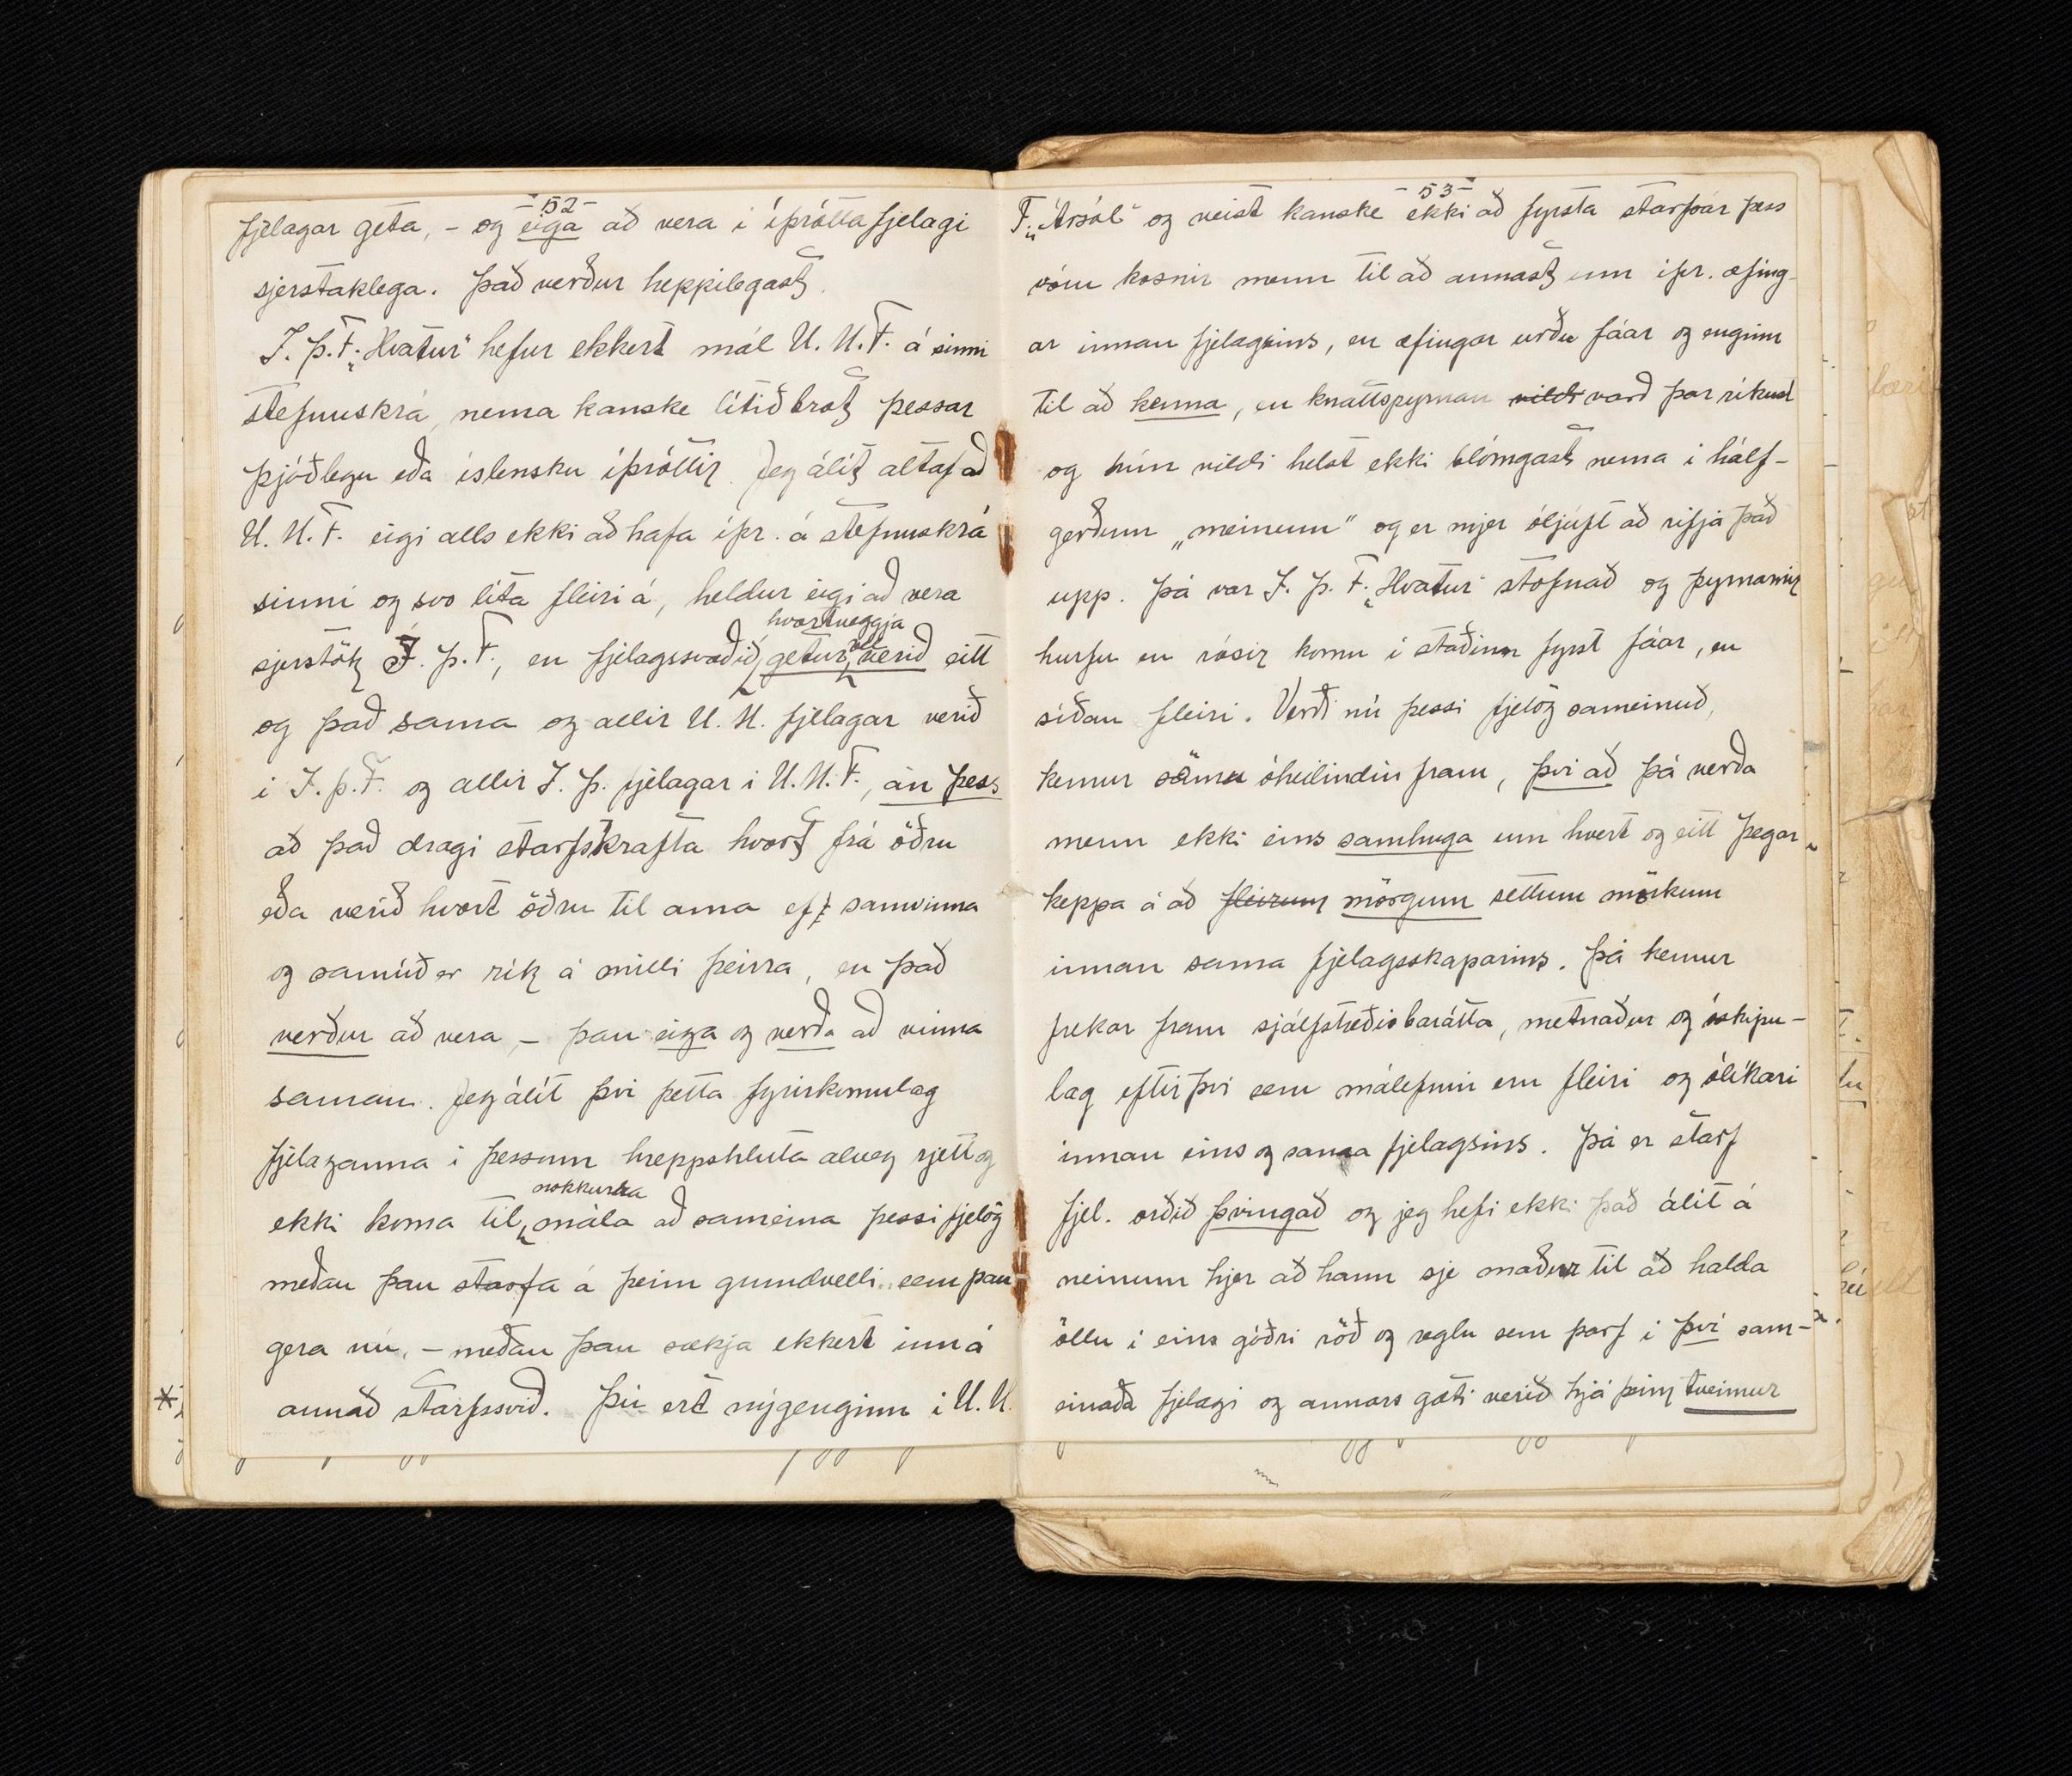 - 52 -
fjelagar geta, - og eiga að vera i íþróttafjelagi
sjerstaklega. Það verður heppilegast.
Í. Þ. F. „Hvatur" hefur ekkert mál U. M. F. á sinni
stefnuskrá, nema kanske lítið brot, þessar
þjóðlegu eða íslensku íþróttir. Jeg álít altaf að
U. M. F. eigi alls ekki að hafa íþr. á stefnuskrá
sinni og svo líta fleiri á, heldur eigi að vera
sjerstök Í. Þ. F., en fjelagssvæðið hvortveggja getur vel verið eitt
og það sama og allir U. M. fjelagar verið
i Í. Þ. F. og allir Í. Þ. fjelagar i U. M. F., án þess
að það dragi starfskrafta hvort frá öðru
eða verið hvort öðru til ama ef samvinna
og samúð er rík á milli þeirra, en það
verður að vera, - þau eiga og verða að vinna
saman. Jeg álít því þetta fyrirkomulag
fjelaganna i þessum hreppshluta alveg rjett og
ekki koma til nokkurra mála að sameina þessi fjelög
meðan þau starfa á þeim grundvelli sem þau
gera nú, - meðan þau sækja ekkert inn á
annað starfssvið. Þú ert nýgenginn i U. M.
- 53 -
F. „Ársól" og veist kanske ekki að fyrsta starfsár þess
vóru kosnir menn til að annast um íþr. æfing-
ar innan fjelagsins, en æfingar urðu fáar og enginn
til að kenna, en knattspyrnan vildi varð þar ríkust
og hún vildi helst ekki blómgast nema i hálf-
gerðum „meinum" og er mjer óljúft að rifja það
upp. Þá var Í. Þ. F. „Hvatur" stofnað og þyrnarnir
hurfu en rósir komu i staðinn fyrst fáar, en
síðan fleiri. Verði nú þessi fjelög sameinuð,
kemur sömu óheilindin fram, því að þá verða
menn ekki eins samhuga um hvert og eitt þegar
keppa á að fleirum mörgum settum mörkum
innan sama fjelagsskaparins. Þá kemur
frekar fram sjálfstæðisbarátta, metnaður og óskipu-
lag eftir því sem málefnin eru fleiri og ólíkari
innan eins og sama fjelagsins. Þá er starf
fjel. orðið þvingað og jeg hefi ekki það álit á
neinum hjer að hann sje maður til að halda
öllu i eins góðri röð og reglu sem þarf i því sam-
einaða fjelagi og annars gæti verið hjá þeim tveimur